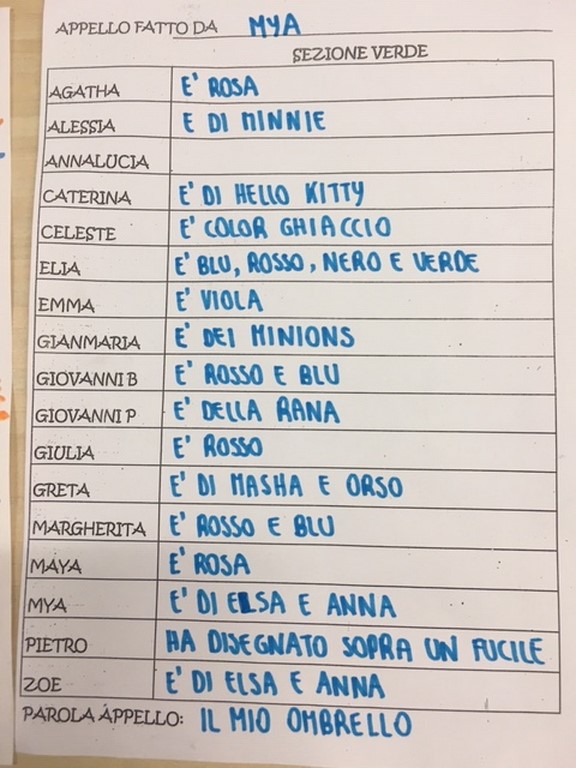 APPELLO FATTO DA MYA
SEZIONE VERDE
AGATHA E' ROSA
ALESSIA E DI MINNIE
ANNALUCIA
CATERINA E' DI HELLO KITTY
CELESTE E' COLOR GHIACCIO
ELIA E' BLU, ROSSO, NERO E VERDE
EMMA E' VIOLA
GIANMARIA E' DEI MINIONS
GIOVANNI B E' ROSSO E BLU
GIOVANNI P E' DELLA RANA
GIULIA E' ROSSO
GRETA E' DI MASHA E ORSO
MARGHERITA E' ROSSO E BLU
MAYA E' ROSA
MYA E' DI ELSA E ANNA
PIETRO HA DISEGNATO SOPRA UN FUCILE
ZOE E' DI ELSA E ANNA
PAROLA APPELLO: IL MIO OMBRELLO